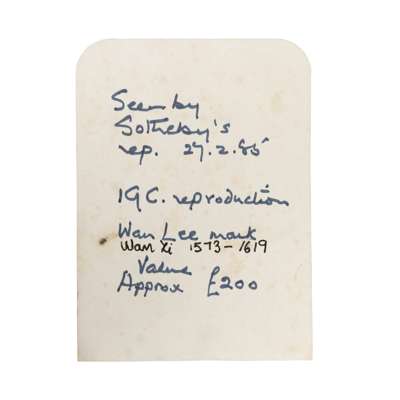 Seen by
Sotheby's
rep. 27.2.85
19C. reproduction
Wan Lee mark
Wan Xi 1573-1619
Value
Approx £200